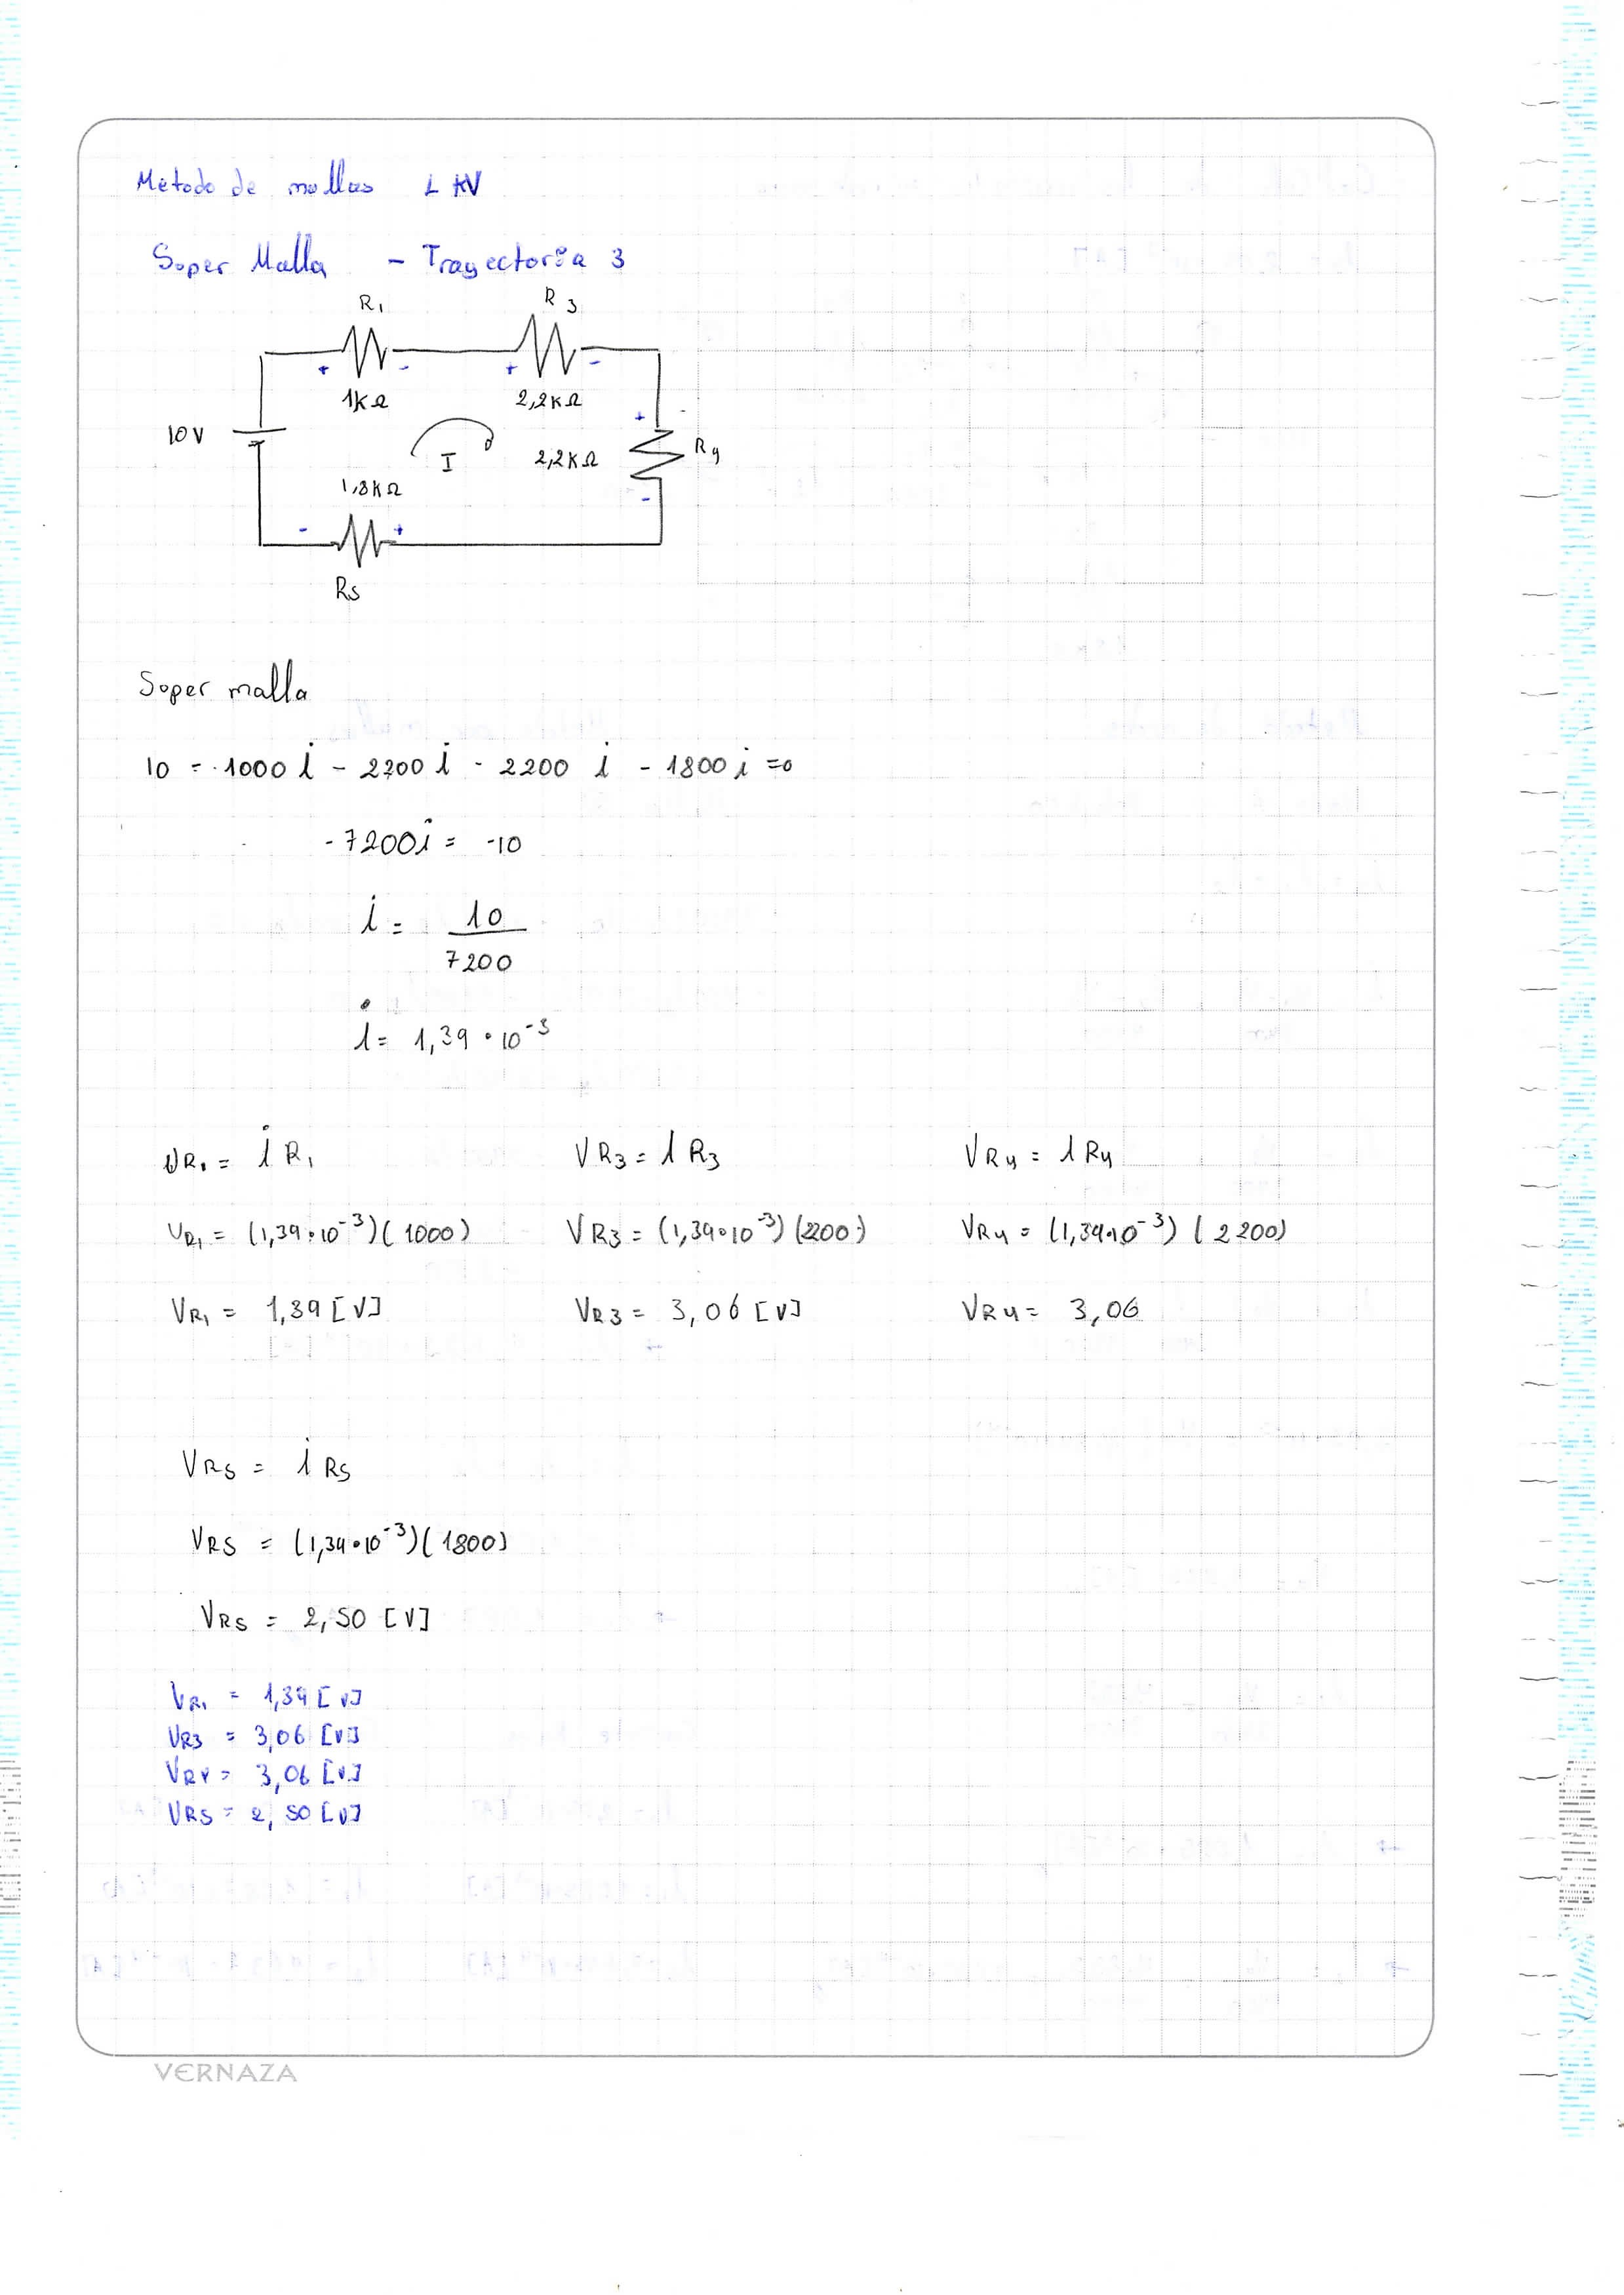 Metodo de mallas LKV
Soper Malla - Trayectoria 3
R1 R3
+ - + -
1kΩ 2,2kΩ
+
10V I 2,2kΩ R4
1,8kΩ
-
- +
R5
Soper malla
10 = -1000 i - 2200 i - 2200 i - 1800 i =0
-7200i = -10
i = 10
7200
i = 1,39 • 10^-3
VR1 = i R1 VR3 = i R3 VR4 = i R4
VR1 = (1,39•10^-3)(1000) VR3 = (1,39•10^-3)(2200) VR4 = (1,39•10^-3)(2200)
VR1 = 1,39 [V] VR3 = 3,06 [V] VR4 = 3,06
VR5 = i R5
VR5 = (1,39•10^-3)(1800)
VR5 = 2,50 [V]
VR1 = 1,39 [V]
VR3 = 3,06 [V]
VR4 = 3,06 [V]
VR5 = 2,50 [V]
VERNAZA